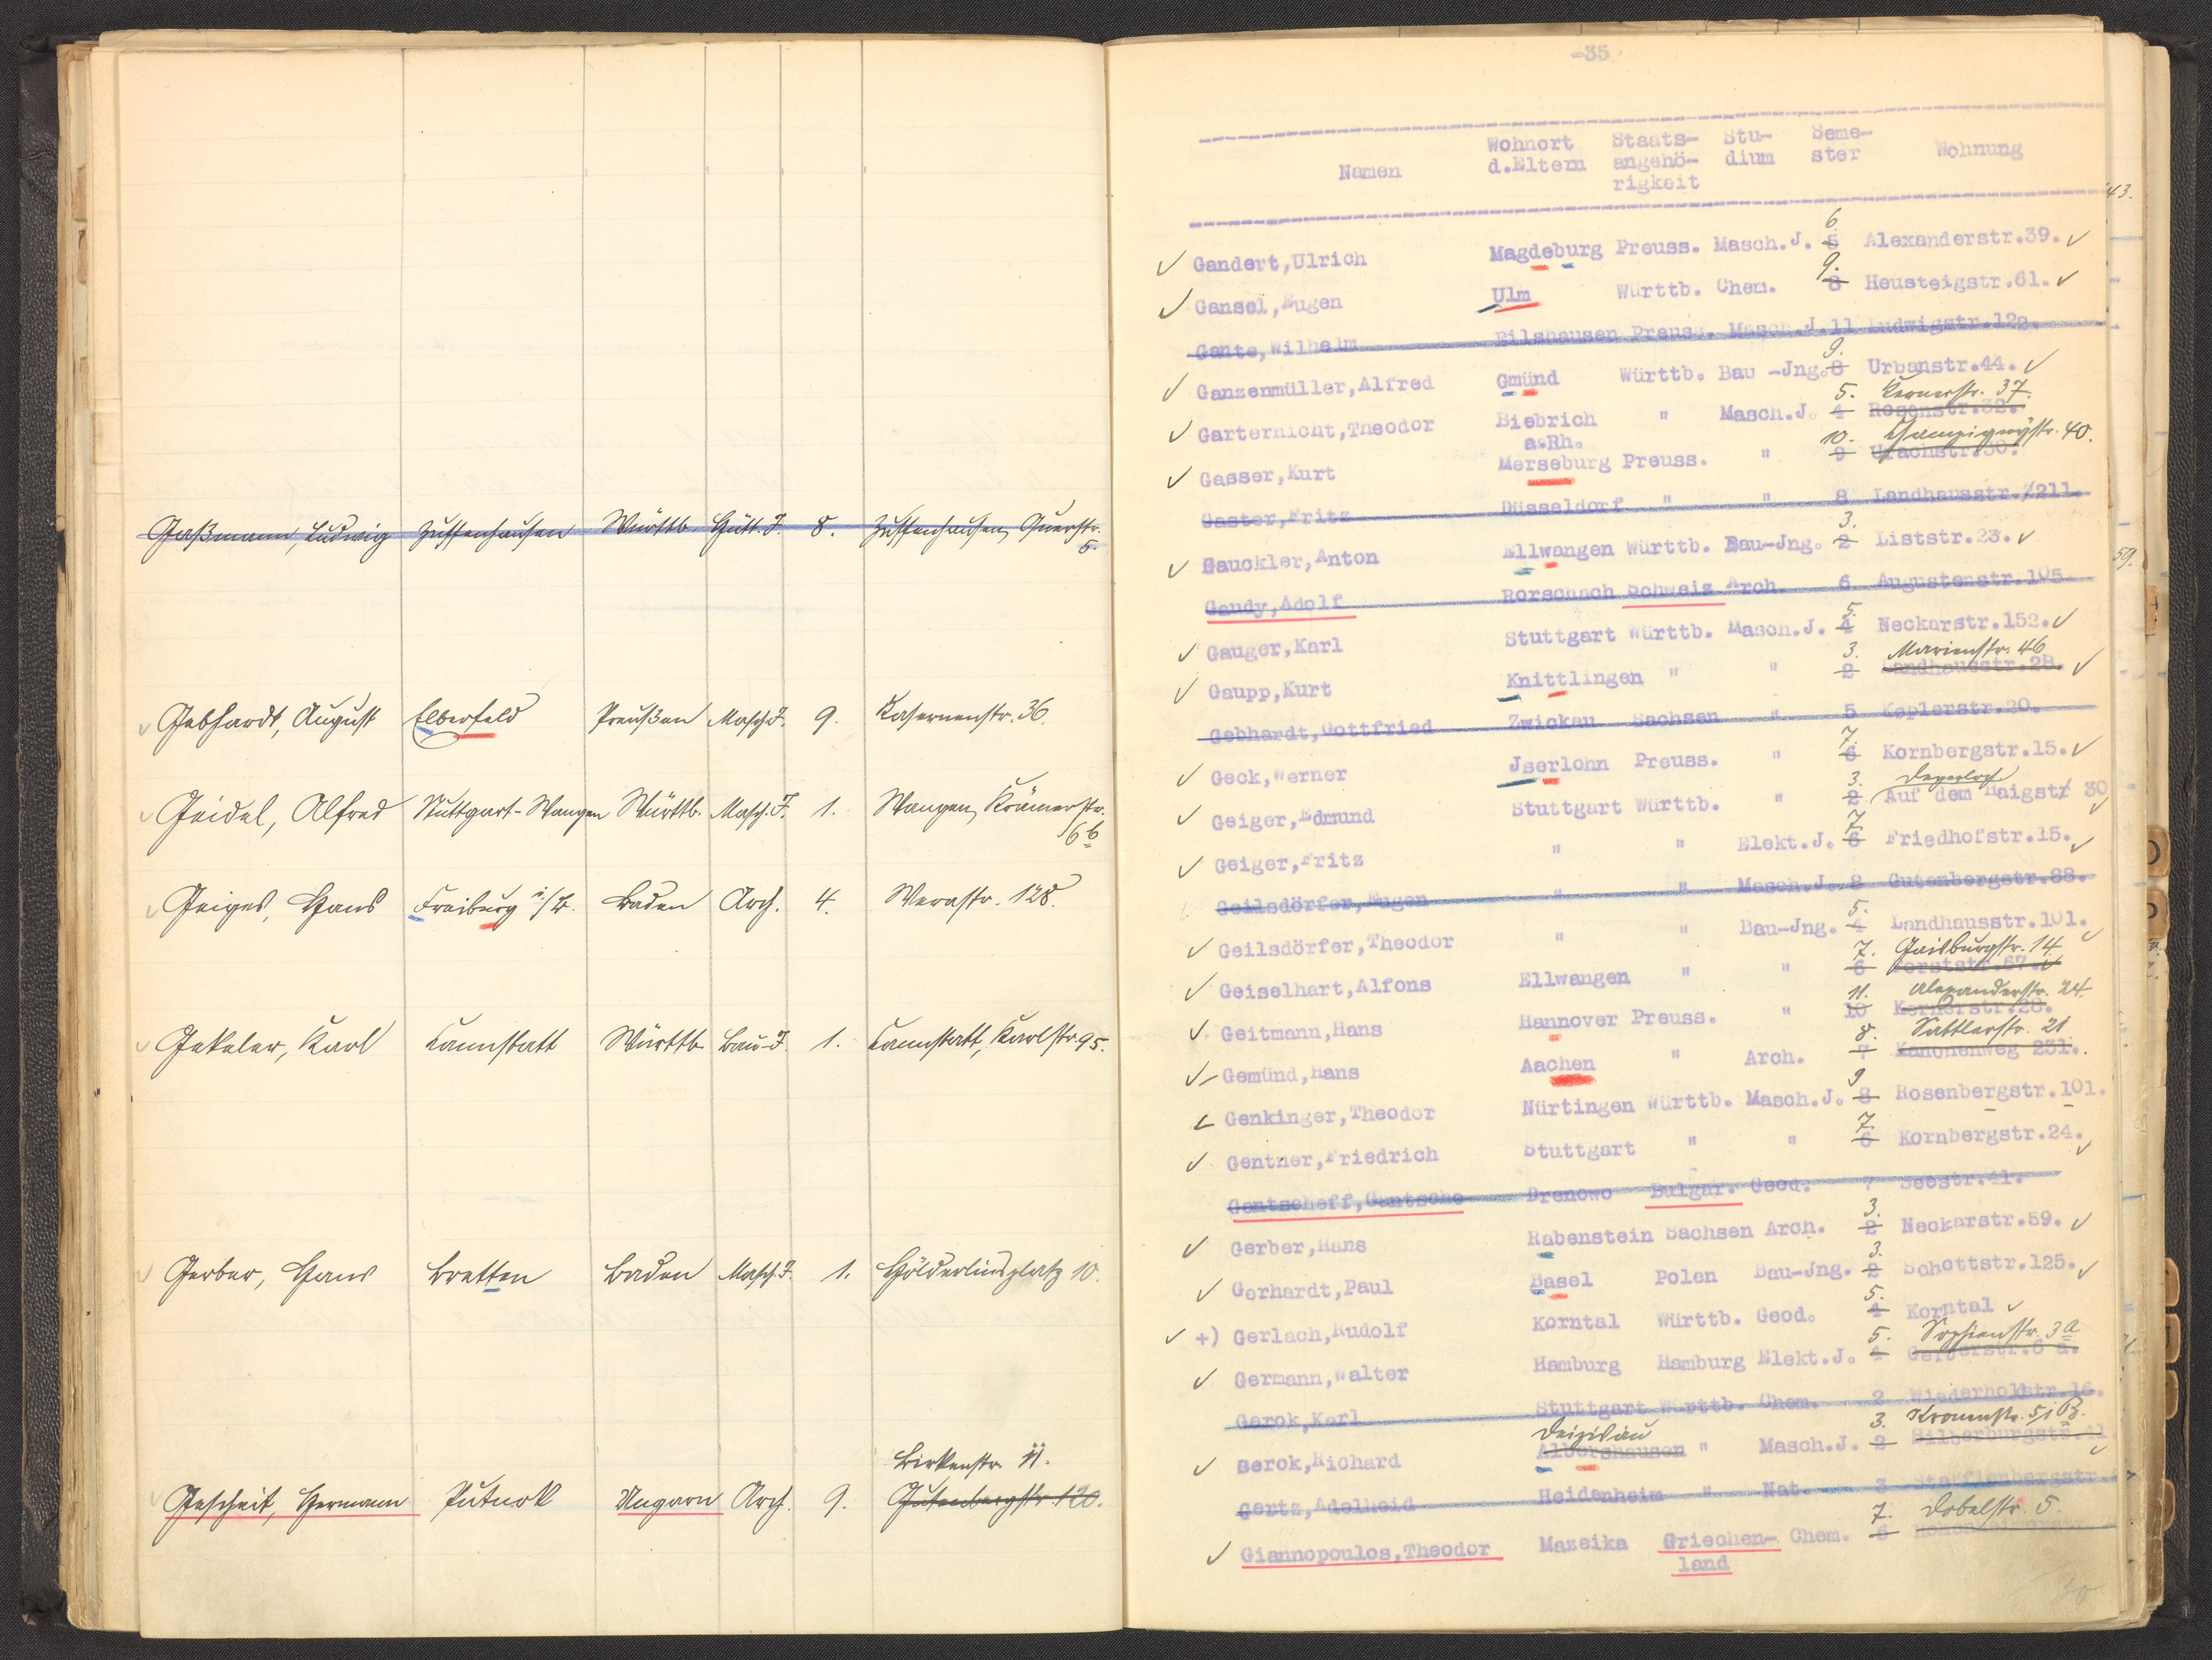 Gaßmann, Ludwig Zuffenhausen Württb. Hütt.J. 8. Zuffenhausen, Querstr.
5.
Gebhardt, August Elberfeld Preußen Masch.J. 9. Kasernenstr. 36.
Geidel, Alfred Stuttgart-Wangen Württb. Masch.J. 1. Wangen, Krämerstr.
6 b
Geiges, Hans Freiburg i/B. Baden Arch. 4. Werastr. 128.
Gekeler, Karl Cannstatt Württb. Bau-J. 1. Cannstatt, Karlstr. 95.
Gerber, Hans Bretten Baden Masch.J. 1. Hölderlinsplatz 10.
Birkenstr. 11.
Gescheit, Hermann Putnok Ungarn Arch. 9. Gutenbergstr. 120.
-35
Namen Wohnort d.Eltern Staats-angehö-rigkeit Stu-dium Seme-ster Wohnung
43.
6.
Gandert,Ulrich Magdeburg Preuss. Masch.J. 5 Alexanderstr.39.
9.
Gansel,Eugen Ulm Württb. Chem. 8 Heusteigstr.61.
Gante,Wilhelm Bilshausen Preuss. Masch.J.11 Ludwigstr.122.
9.
Ganzenmüller,Alfred Gmünd Württb. Bau -Jng.8 Urbanstr.44.
5. Kernerstr. 37.
Garternicht,Theodor Biebrich " Masch.J. 4 Rosenstr.32.
a.Rh.
10. Champignystr. 40.
Gasser,Kurt Merseburg Preuss. " 9 Urachstr.30.
Gaster,Fritz Düsseldorf " " 8 Landhausstr./211.
3.
Gauckler,Anton Ellwangen Württb. Bau-Jng. 2 Liststr.23.
59.
Gaudy,Adolf Rorschach Schweiz Arch. 6 Augustenstr.105.
5.
Gauger,Karl Stuttgart Württb. Masch.J. 4 Neckarstr.152.
3. Marienstr. 46
Gaupp,Kurt Knittlingen " " 2 Landhausstr.28.
Gebhardt,Gottfried Zwickau Sachsen " 5 Keplerstr.20.
7.
Geck,Werner Jserlohn Preuss. " 6 Kornbergstr.15.
3. Degerloch
Geiger,Edmund Stuttgart Württb. " 2 Auf dem Haigst 30
7.
Geiger,Fritz " " Elekt.J. 6 Friedhofstr.15.
Geilsdörfer,Eugen " " Masch.J. 8 Gutenbergstr.88.
5.
Geilsdörfer,Theodor " " Bau-Jng. 4 Landhausstr.101.
7. Gaisburgstr. 14
Geiselhart,Alfons Ellwangen " " 6 Forststr.67.
11. Alexanderstr. 24.
Geitmann,Hans Hannover Preuss. " 10 Kernerstr.28.
8. Sattlerstr. 21
Gemünd,Hans Aachen " Arch. 7 Kanonenweg 231.
9
Genkinger,Theodor Nürtingen Württb. Masch.J. 8 Rosenbergstr.101.
7.
Gentner,Friedrich Stuttgart " " 6 Kornbergstr.24.
Gentscheff,Gantscho Drenowo Bulgar. Geod. 7 Seestr.41.
3.
Gerber,Hans Rabenstein Sachsen Arch. 2 Neckarstr.59.
3.
Gerhardt,Paul Basel Polen Bau-Jng. 2 Schottstr.125.
5.
+) Gerlach,Rudolf Korntal Württb. Geod. 4 Korntal
5. Sophienstr. 3 a
Germann,Walter Hamburg Hamburg Elekt.J. 4 Gerberstr.6 a.
Gerok,Karl Stuttgart Württb. Chem. 2 Wiederholdstr.16.
Deizisau 3. Kronenstr. 51 B.
Gerok,Richard Albershausen " Masch.J. 2 Silberburgstr.
Gertz,Adelheid Heidenheim " Nat. 3 Stafflenbergstr.
7. Dobelstr. 5.
Giannopoulos,Theodor Mazeika Griechen- Chem. 6
land
30